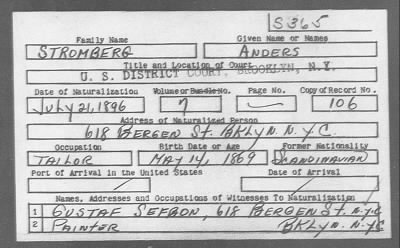 S365
Family Name Given Name or Names
STROMBERG ANDERS
Title and Location of Court
U. S. DISTRICT COURT, BROOKLYN, N.Y.
Date of Naturalization Volume or Bundle No. Page No. Copy of Record No.
JULY 21, 1896 7 — 106
Address of Naturalized Person
618 BERGEN St. BKLYN. N.Y.C.
Occupation Birth Date or Age Former Nationality
TAILOR MAY 14, 1869 SCANDINAVIAN
Port of Arrival in the United States Date of Arrival
Names, Addresses and Occupations of Witnesses To Naturalization
1 GUSTAF SEFBON, 618 BERGEN St. N.Y.C.
2 PAINTER BKLYN. N.Y.C